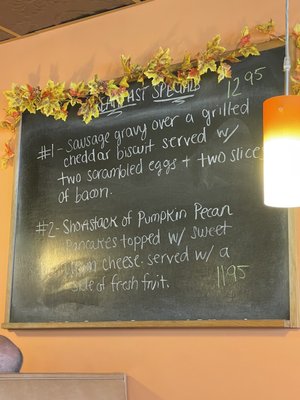 BREAKFAST SPECIALS
12.95
#1- Sausage gravy over a grilled
cheddar biscuit served w/
two scrambled eggs + two slices
of bacon.
#2- Shortstack of Pumpkin Pecan
Pancakes topped w/ sweet
cream cheese. served w/ a
side of fresh fruit. 11.95